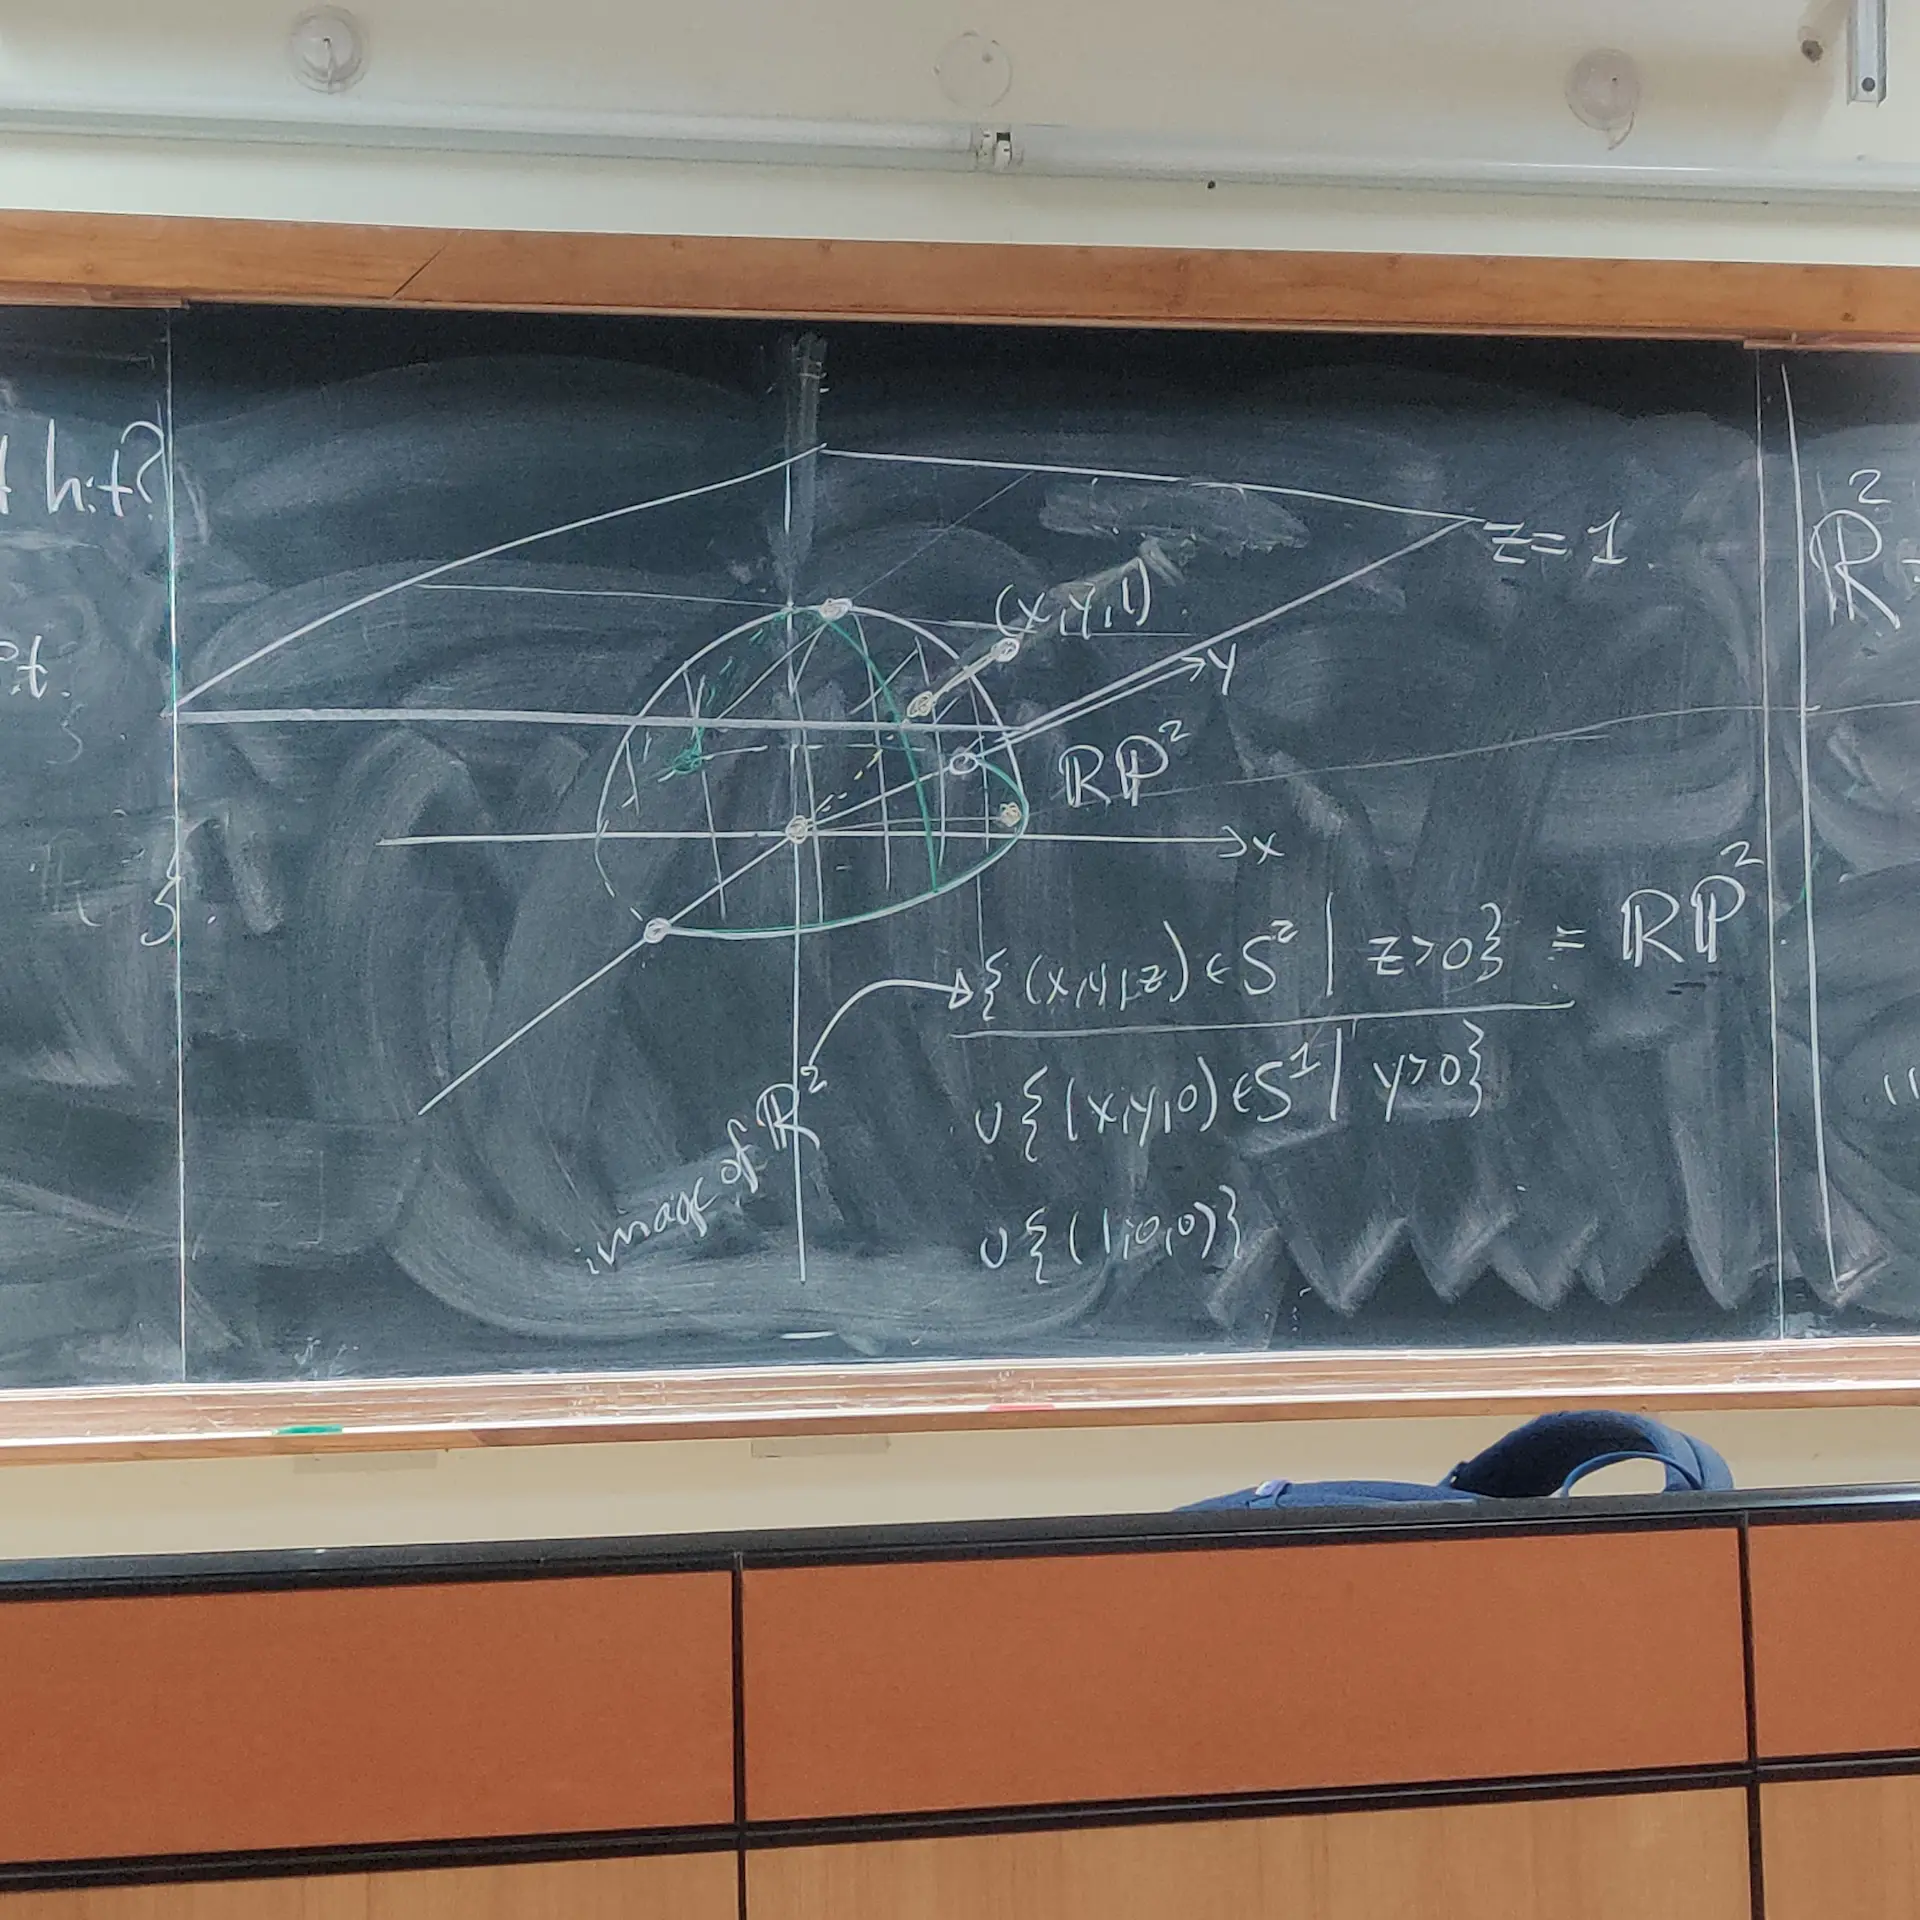 hit?
z=1
(x,y,1)
y
ℝℙ²
x
{(x,y,z)∈S² | z>0} = ℝℙ²
∪{(x,y,0)∈S¹ | y>0}
∪{(1,0,0)}
image of ℝ²
ℝ²